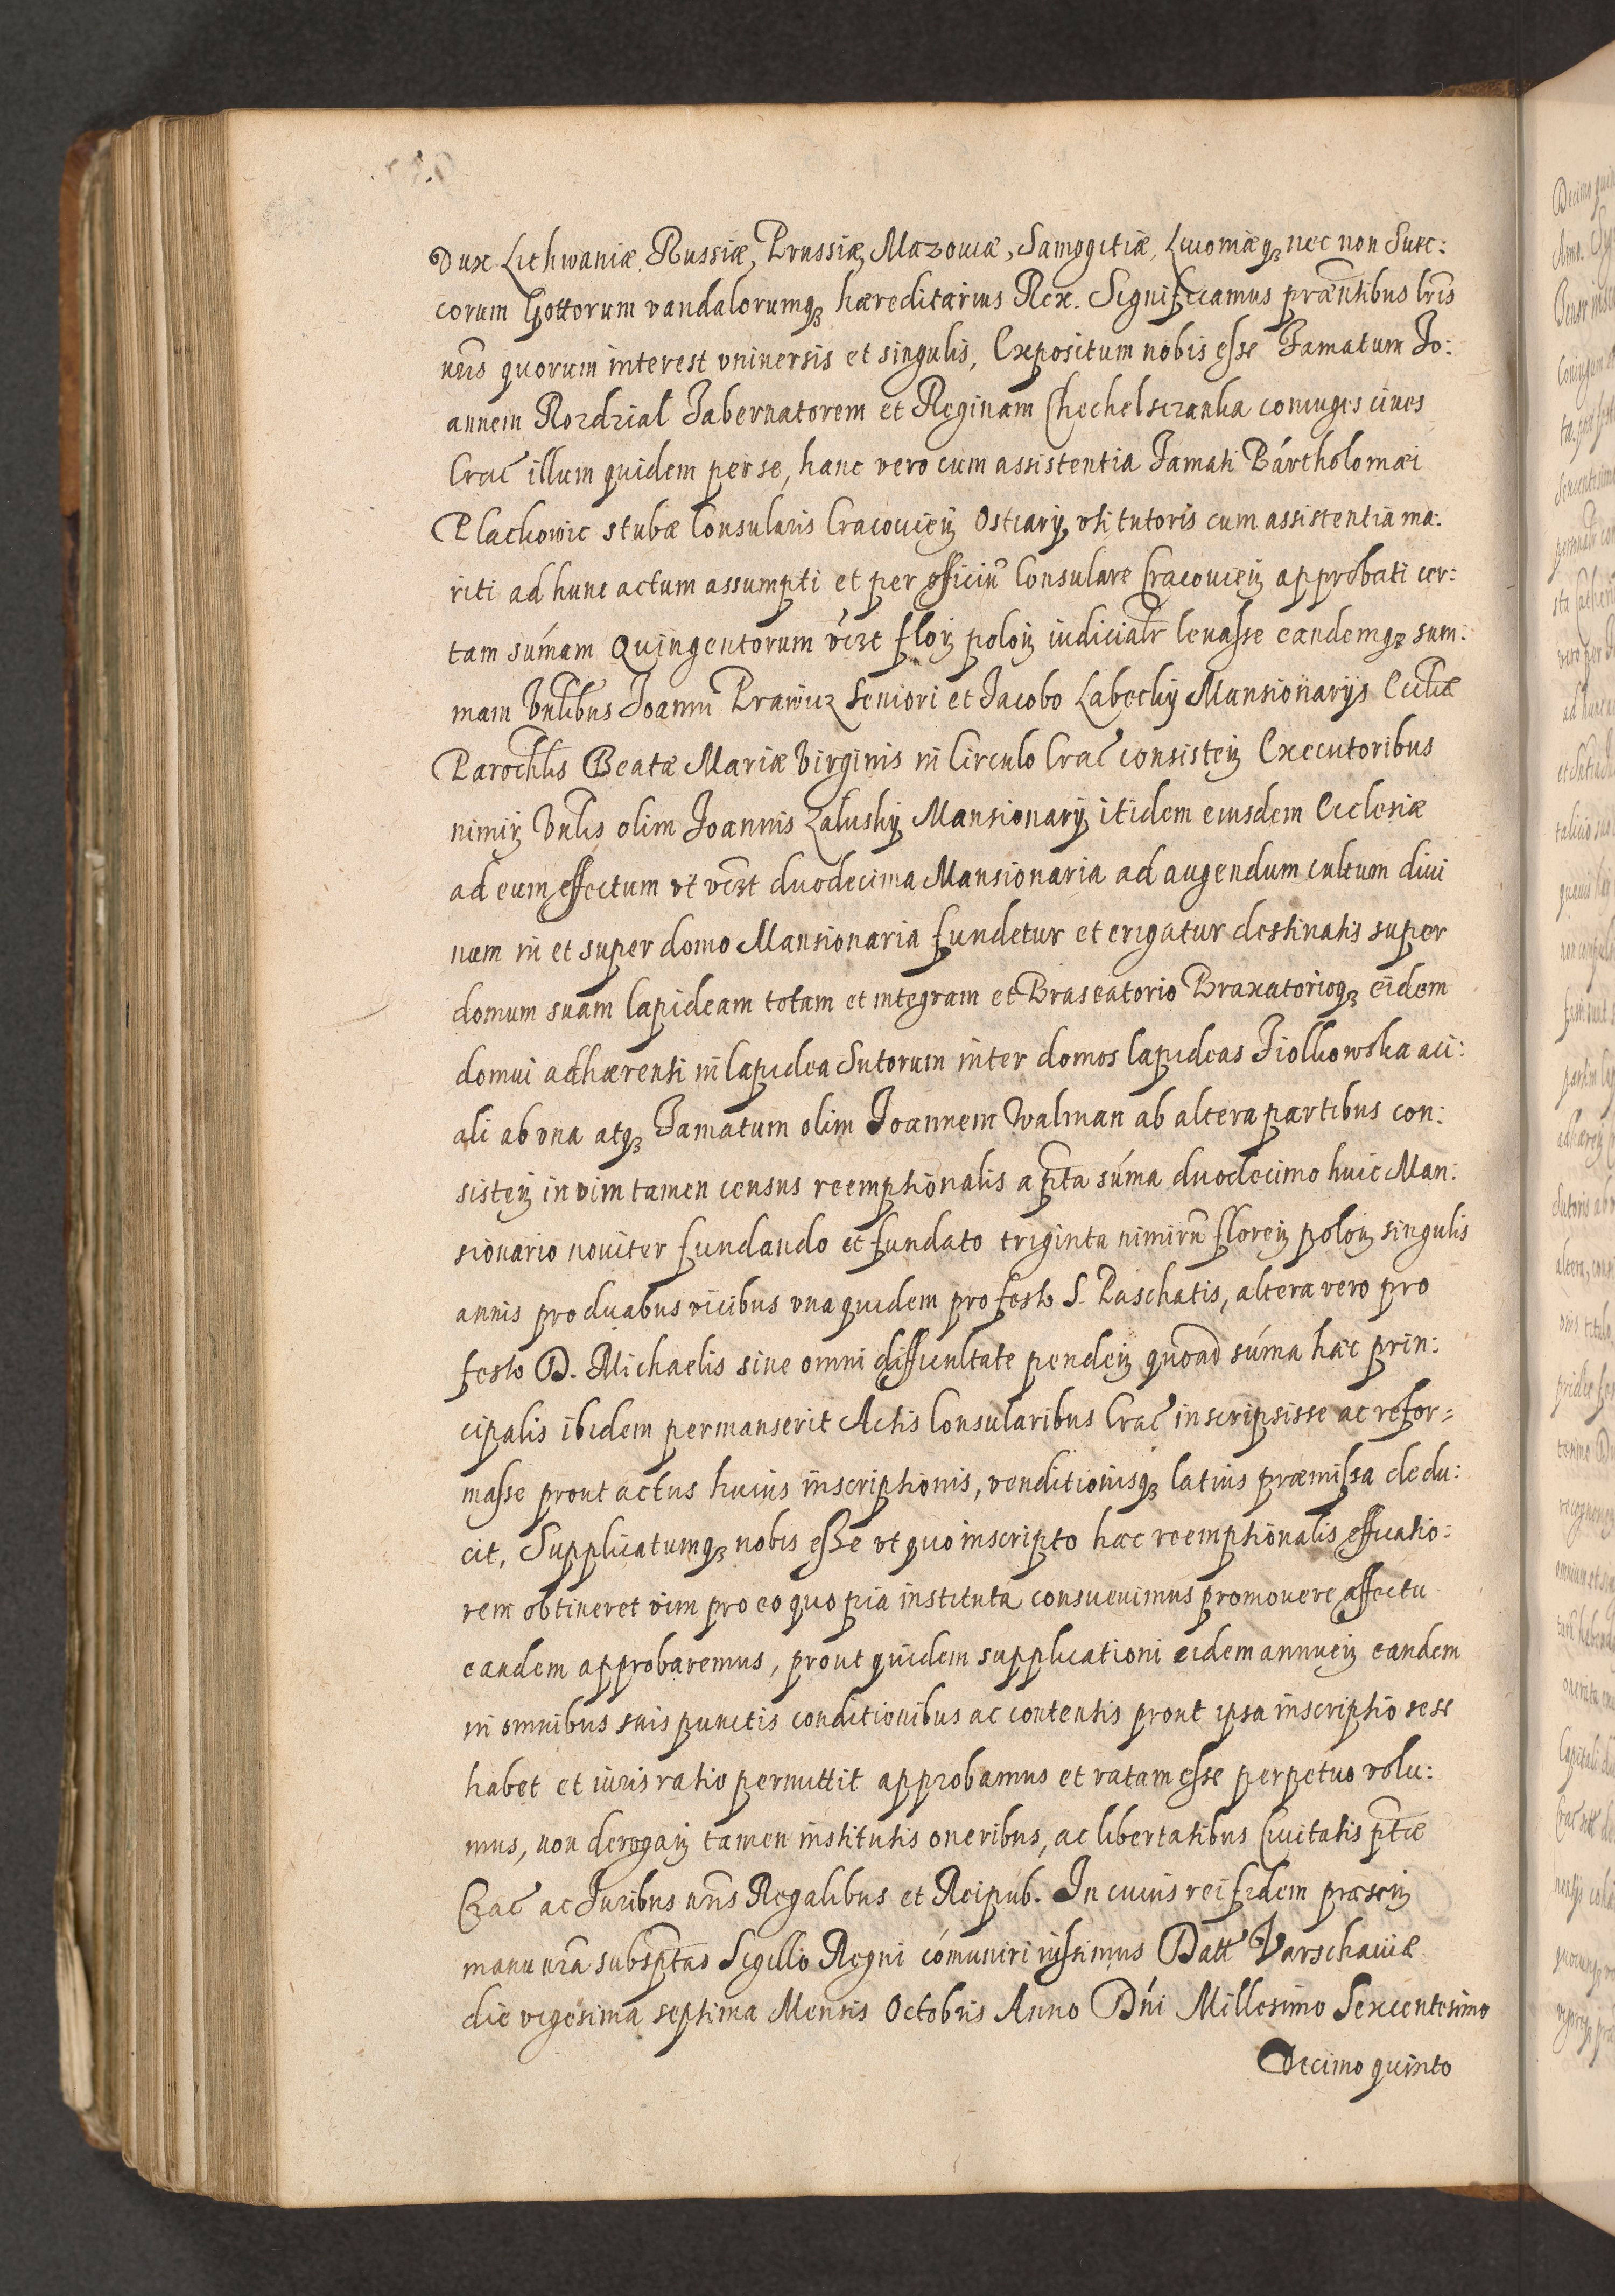 Dux Lithwaniæ, Russiæ, Prussiæ, Mazoviæ, Samogitiæ, Livoniæq₃ nec non Suec:
corum Gottorum vandalorumq₃ hæreditarius Rex. Significamus præntibus lris
nris quorum interest vniversis et singulis, Expositum nobis esse Famatum Jo:
annem Rozdział Tabernatorem et Reginam Chechelscranka coniuges cives
Crac illum quidem per se, hanc vero cum assistentia Famati Bártholomæi
Plackowic stubæ Consularis Cracovien Ostiarij vti tutoris cum assistentia ma:
riti ad hunc actum assumpti et per officiū Consulare Cracovien approbati cer:
tam sum̄am Quingentorum vc̄zt flor polon iudicialr levasse eandemq₃ sum:
mam Vnlibus Joanni Prawicz Seniori et Jacobo Labecky Mansionarijs Eccliæ
Parochlis Beatæ Mariæ Virginis in Circulo Crac consisten Executoribus
nimir Vnlis olim Joannis Zalusky Mansionarij itidem eiusdem Ecclesiæ
ad eum effectum vt vc̄zt duodecima Mansionaria ad augendum cultum divi
num in et super domo Mansionaria fundetur et erigatur destinatis super
domum suam lapideam totam et integram et Braseatorio Braxatorioq₃ eidem
domui adhærenti in lapidea Sutorum inter domos lapideas Fiolkowska aci:
ali ab vna atq₃ Famatum olim Joannem Walman ab altera partibus con:
sisten in vim tamen census reemptionalis a pta sum̄a duodecimo huic Man:
sionario noviter fundando et fundato triginta nimirū floren polon singulis
annis pro duabus vicibus vna quidem pro festo S. Paschatis, altera vero pro
festo D. Michaelis sine omni difficultate penden quoad sum̄a hæc prin:
cipalis ibidem permanserit Actis Consularibus Crac inscripsisse ac refor=
masse prout actus huius inscriptionis, venditionisq₃ latius præmissa dedu:
cit, Supplicatumq₃ nobis esse vt quo inscripto hæc reemptionalis efficatio:
rem obtineret vim pro eo quo pia instituta consuevimus promovere affectu
eandem approbaremus, prout quidem supplicationi eidem annuen eandem
in omnibus suis punctis conditionibus ac contentis prout ipsa inscriptio sese
habet et iuris ratio permittit approbamus et ratam esse perpetuo volu:
mus, non derogan tamen institutis oneribus, ac libertatibus Civitatis ptæ
Crac ac Juribus nris Regalibus et Reipub. In cuius rei fidem præsen
manu nra subsptas Sigillo Regni com̄uniri iussimus Datt Varschaviæ
die vigesima septima Mensis Octobris Anno Dn̄i Millesimo Sexcentesimo
Decimo quinto